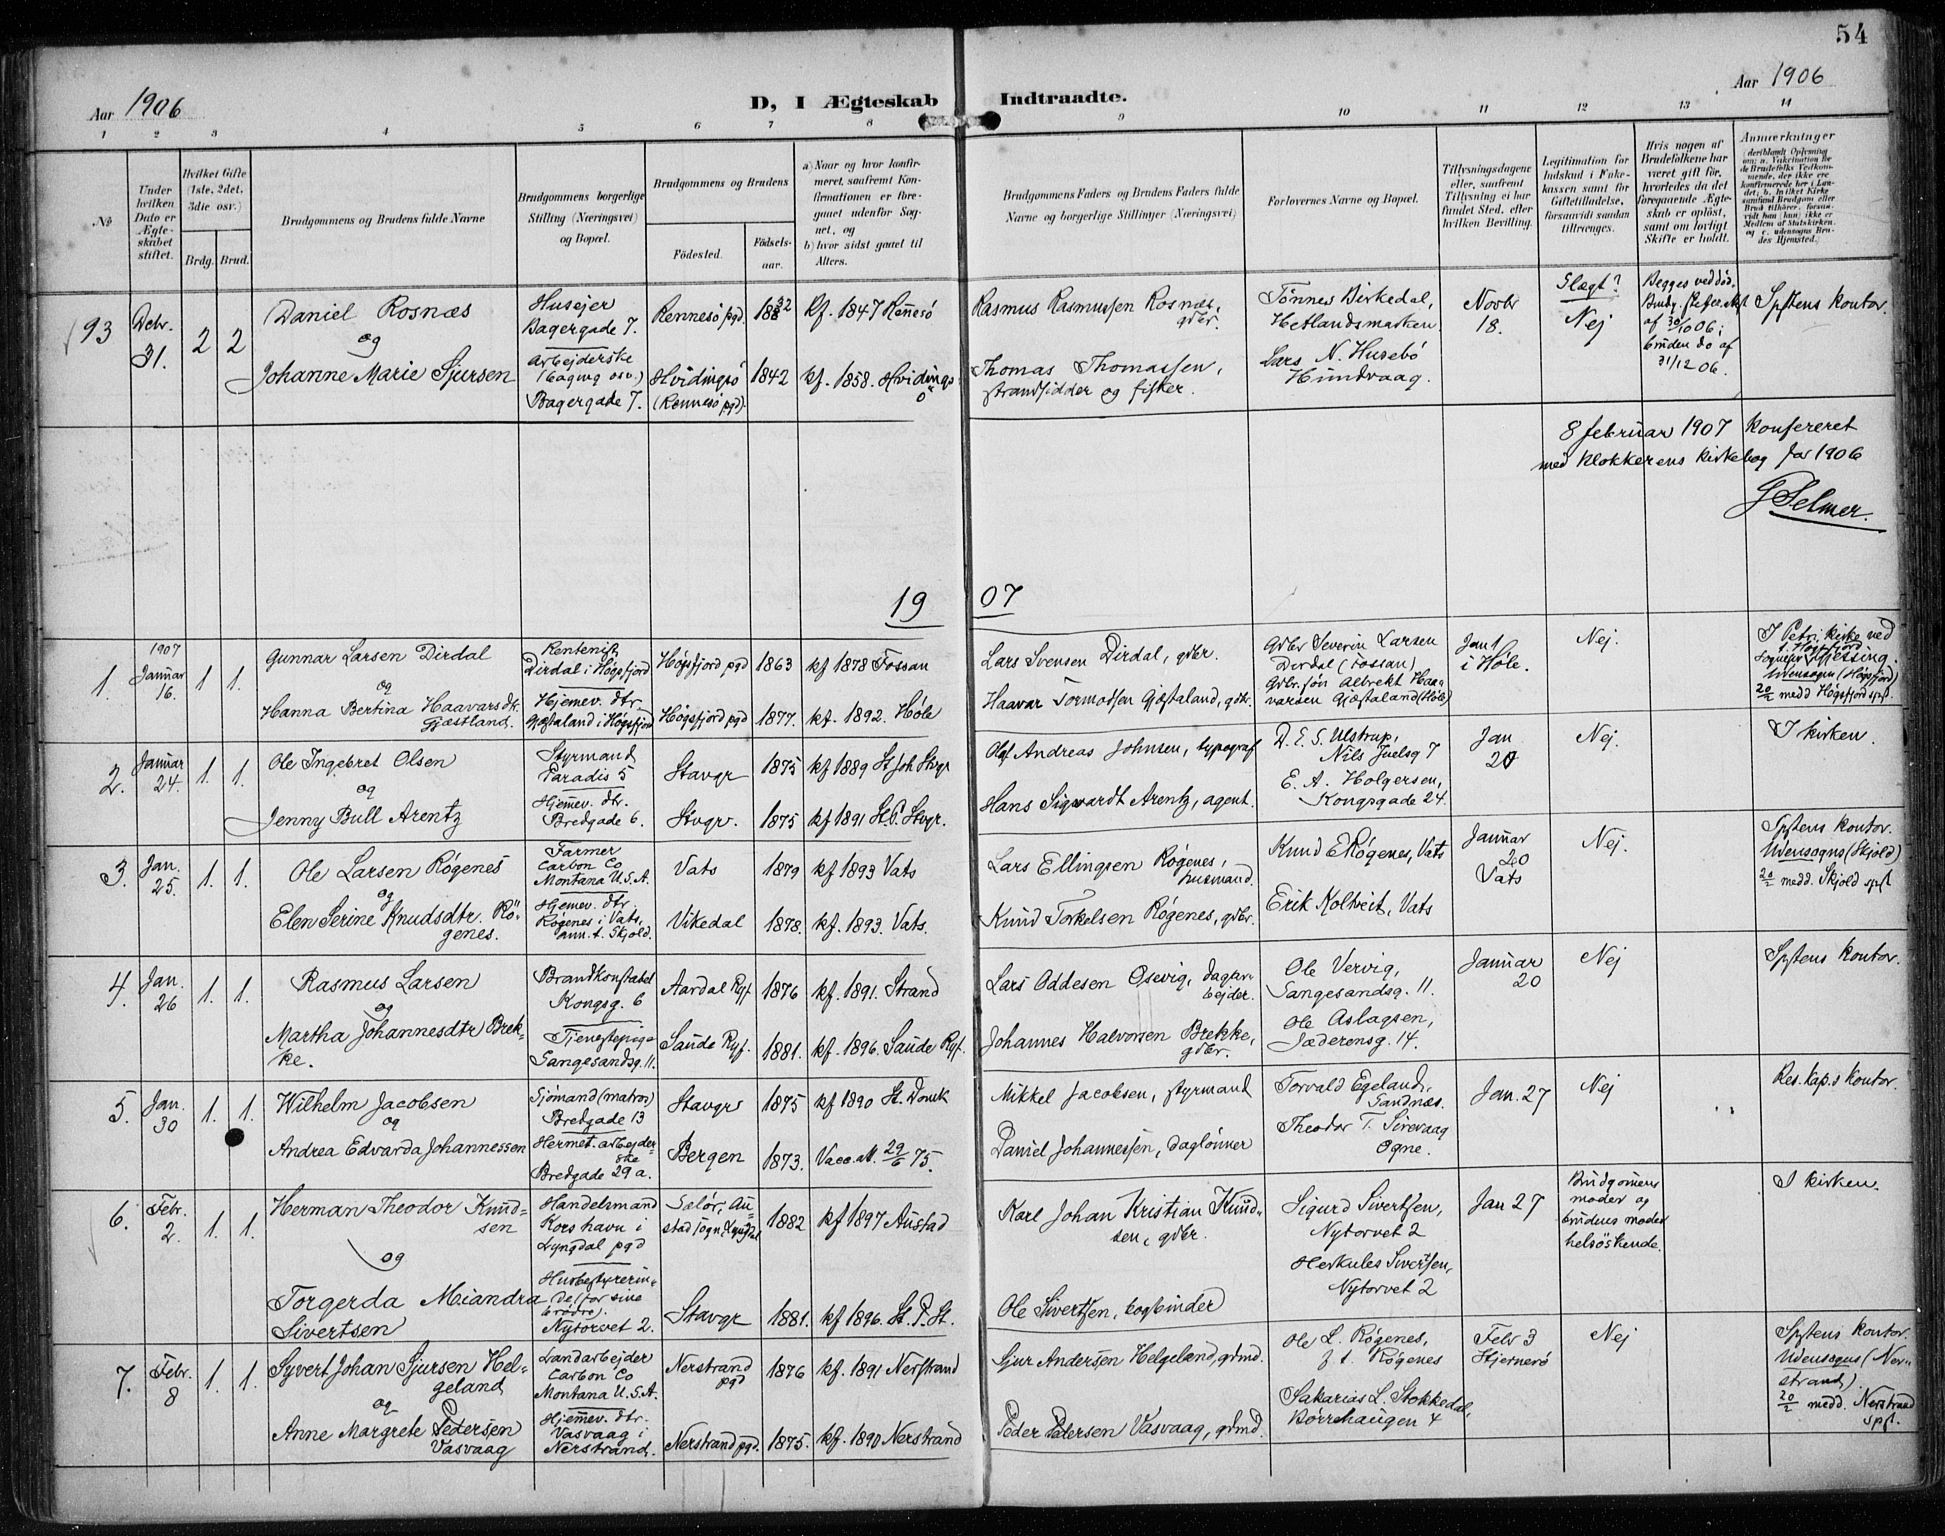 54
Aar 1906
D, I Ægteskab Indtraadte.
Aar 1906
1 2 3 4 5 6 7 8 9 10 11 12 13 14
No
Under hvilken Dato er Ægteskabet stiftet.
Hvilket Gifte (1ste, 2det, 3die osv.)
Brdg. Brud.
Brudgommens og Brudens fulde Navne
Brudgommens borgerlige Stilling (Næringsvei) og Bopæl.
Brudgommens og Brudens
Fødested.
Fødselsaar.
a) Naar og hvor konfirmeret, saafremt Konfirmationen er foregaaet udenfor Sognet, og
b) hvor sidst gaaet til Alters.
Brudgommens Faders og Brudens Faders fulde Navne og borgerlige Stillinger (Næringsvei)
Forlovernes Navne og Bopæl.
Tillysningsdagene eller, saafremt Tillysning ei har fundet Sted, efter hvilken Bevilling.
Legitimation for Indskud i Enkekassen samt for Giftetilladelse, forsaavidt saadan tiltrænges.
Hvis nogen af Brudefolkene har været gift før, hvorledes da det foregaaende Ægteskab er opløst, samt om lovligt Skifte er holdt.
Anmerkninger
(deriblandt Oplysning om: a. Vaccination for de Brudefolks Vedkommende, der ikke ere konfirmerede her i Landet, b. hvilket Kirkesamfund Brudgom eller Brud tilhører, forsaavidt han (hun) ikke er Medlem af Statskirken, og c. udensogns Brudes Hjemsted.)
93
Debr. 31.
2 2
Daniel Rosnæs
og
Johanne Marie Sjursen
Husejer
Bagergade 7.
Arbejderske
(bagning osv.)
Bagergade 7.
Rennesö pgd.
1832
kf. 1847 Rennesö
Hvidingsö
(Rennesö pgd).
1842
kf. 1858. Hvidingsö
Rasmus Rasmussen Rosnæs, gdbr.
Thomas Thomassen,
strandsidder og fisker.
Tönnes Birkedal,
Hetlandsmarken.
Lars N. Husebö
Hundvaag.
Novbr
18.
Slægt?
Nej
Begges ved död.
Brudg. skifteattest
af 30/10 06;
bruden do af
31/12 06.
Spstens kontor.
8 februar 1907 konfereret
med klokkerens kirkebog for 1906
G Selmer.
19 07
1.
1907
Januar
16.
1 1.
Gunnar Larsen Dirdal
og
Hanna Bertina Haavarsdtr.
Gjæstland.
Rentenist
Dirdal i Högsfjord
Hjemev. dtr.
Gjæstaland i Högsfjord
Högsfjord pgd 1863 kf 1878 Fossan
Högsfjord pgd 1877. kf. 1892. Höle
Lars Svensen Dirdal, gdbr.
Haavar Tormodsen Gjæstaland, gdbr.
Gdbr Severin Larsen
Dirdal (Fossan)
Gdbr. søn Albrekt Haavarsen
Gjæstaland (Höle)
Jan 1
i Höle.
Nej.
I Petri kirke ved
sognepr i Högsfjord Gjessing.
Udensogns (Högsfjord)
20/2 medd Högsfjord spst.
2.
Januar
24.
1. 1.
Ole Ingebret Olsen
og
Jenny Bull Arentz
Styrmand
Paradis 5
Hjemev. dtr.
Bredgade 6.
Stavgr 1875 kf 1889 St Joh Stvgr
Stvgr. 1875 kf 1891 St. P. Stvgr.
Olaf Andreas Johnsen, typograf
Hans Sigvardt Arentz, agent.
D. E. S. Ulstrup,
Nils Juelsg 7
E. A. Holgersen,
Kongsgade 24.
Jan
20
Nej.
I kirken.
3.
Jan.
25.
1. 1.
Ole Larsen Røgenes
og
Elen Serine Knudsdtr. Rögenes.
Farmer
Carbon Co
Montana U.S.A.
Hjemev. dtr
Røgenes i Vats,
ann. t. Skjold.
Vats 1879 kf 1893 Vats
Vikedal 1878. kf. 1893. Vats.
Lars Ellingsen Røgenes,
husmand.
Knud Torkelsen Røgenes, gdbr.
Knud E Røgenes, Vats
Erik Koltveit, Vats
Januar
20
Vats
Nej.
Spstens kontor.
Udensogns (Skjold)
20/2 medd. Skjold spst
4.
Jan.
26
1. 1.
Rasmus Larsen
og
Martha Johannesdtr Brekke.
Brandkonstabel
Kongsg. 6
Tjenestepige
Langesandsg. 11.
Aardal Ryf. 1876 kf. 1891. Strand
Saude Ryf. 1881. kf. 1896. Saude Ryf.
Lars Oddesen Osevig, dagarbejder.
Johannes Halvorsen Brekke,
gdbr.
Ole Vervig,
Langesandsg. 11.
Ole Aslagsen,
Jæderensg. 14.
Januar
20
Nej
Spstens kontor.
5.
Jan.
30
1. 1.
Wilhelm Jacobsen
og
Andrea Edvarda Johannessen
Sjömand (matros)
Bredgade 13
Hermet. arbejderske
Bredgade 29 a.
Stavgr 1875 kf 1890 St. Domk
Bergen 1873. Vacc. att. 29/6 75.
Mikkel Jacobsen, styrmand
Daniel Johannessen, daglönner
Torvald Egeland,
Sandnæs.
Theodor T. Sirevaag
Ogne.
Jan. 27
Nej
Res. kap.s kontor.
6.
Febr.
2.
1. 1.
Herman Theodor Knudsen
og
Torgerda Miandra
Sivertsen
Handelsmand
Korshavn i
Lyngdal pgd
Husbestyrerinde
(for sine
brödre).
Nytorvet 2.
Selör, Austad
sogn, Lyngdal 1882 kf 1897 Austad
Stavgr 1881. kf 1896. St. P. St.
Karl Johan Kristian Knudsen,
gdbr.
Ole Sivertsen, bogbinder
Sigurd Sivertsen,
Nytorvet 2
Herkules Sivertsen,
Nytorvet 2
Jan 27
Brudgomens
moder og
brudens moder
helsöskende.
I kirken.
7.
Febr.
8
1. 1.
Syvert Johan Sjursen Helgeland
og
Anne Margrete Pedersen
Vasvaag
Landarbejder
Carbon Co
Montana U.S.A.
Hjemev. dtr.
Vasvaag i
Nerstrand.
Nerstrand
pgd 1876 kf. 1891 Nerstrand
Nerstrand pgd. 1875. kf. 1890 Nerstrand
Sjur Andersen Helgeland, grmd.
Peder Pedersen Vasvaag, grmd.
Ole L. Røgenes,
p. t. Røgenes
Sakarias L. Stokkedal,
Börrehaugen 4
Febr 3
Stjernerö
Nej
Spstens kontor.
Udensogns (Nerstrand)
20/2 medd. Nerstrand
spst.